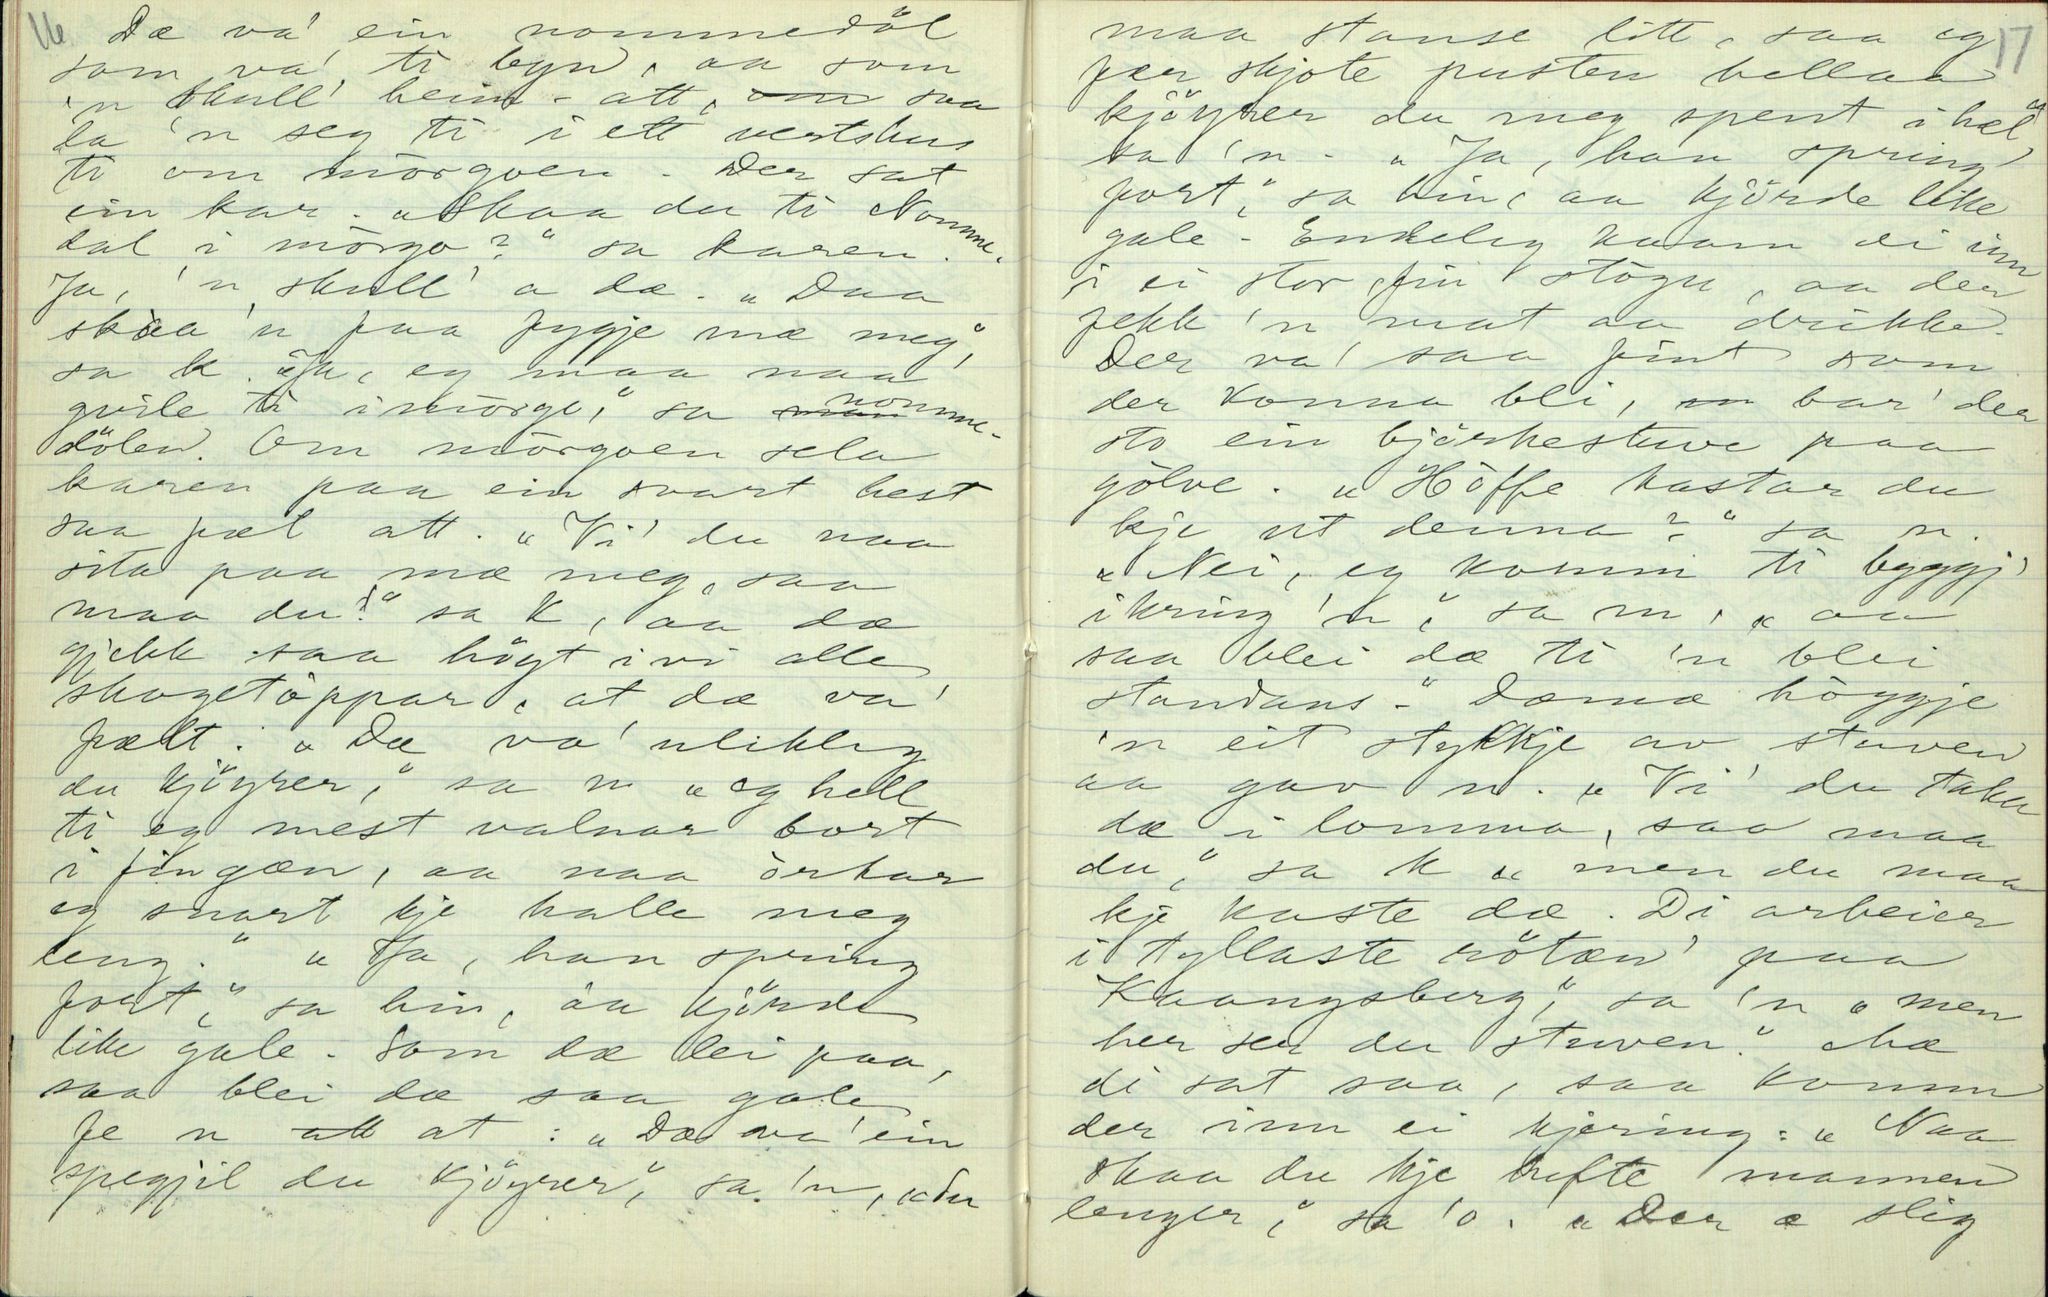 16
Dæ va' ein nommedöl
som va' ti byn, aa som
'n skull' heim-att, om saa
la 'n seg ti i ett vertshus
ti om mörgoen. Der sat
ein kar. „Skaa du ti Nomme-
dal i mörgo?“ sa karen.
Ja, 'n skull' a dæ. „Daa
skaa 'n faa fygje mæ meg“,
sa k. „Ja, eg maa naa
qvile ti imörgo,“ sa man nomme-
dölen. Om mörgoen sela
karen paa ein svart hest
saa fæl att. „Vi' du naa
sita paa mæ meg, saa
maa du!“ sa k, aa dæ
gjekk saa högt ivi alle
skogetöppar, at dæ va'
fælt. „Dæ va' ulikleg
du kjöyrer,“ sa n „eg hell
ti eg mest valnar bort
i fingæn, aa naa örkar
eg snart kje halle meg
leng.“ „Ja, han spring
fort,“ sa hin, aa kjörde
like gale. Som dæ lei paa,
saa blei dæ saa gale
fe n att at: „Dæ va' ein
spegjil du kjöyrer,“ sa 'n, „du
17
maa stanse litt, saa eg
fær skjote pusten hellaa
kjöyrer du meg spent ihæl“
sa 'n. „Ja, han spring
fort,“ sa hin, aa kjörde like
gale. Endeleg kaam di inn
i ei stor, fin stögu, aa der
fekk 'n mat aa drikke.
Der va' saa fint som
der konna bli, m bar' der
sto ein björkestuve paa
gölve. „Höffe kastar du
kje ut denna?“ sa n.
„Nei, eg komm ti byggj'
ikring 'n,“ sa m, „aa
saa blei dæ ti 'n blei
standans.“ Dæmæ höggje
'n eit stykkje av stuven
aa gav n. „Vi' du taka
dæ i lomma, saa maa
du,“ sa k „men du maa
kje kaste dæ. Di arbeier
i tyllaste rötæn' paa
Kaangsberg,“ sa 'n „men
her ser du stuven.“ Mæ
di sat saa, saa komm
der inn ei kjering: „Naa
skaa du kje tufte mannen
lenger,“ sa 'o. „Der æ slig